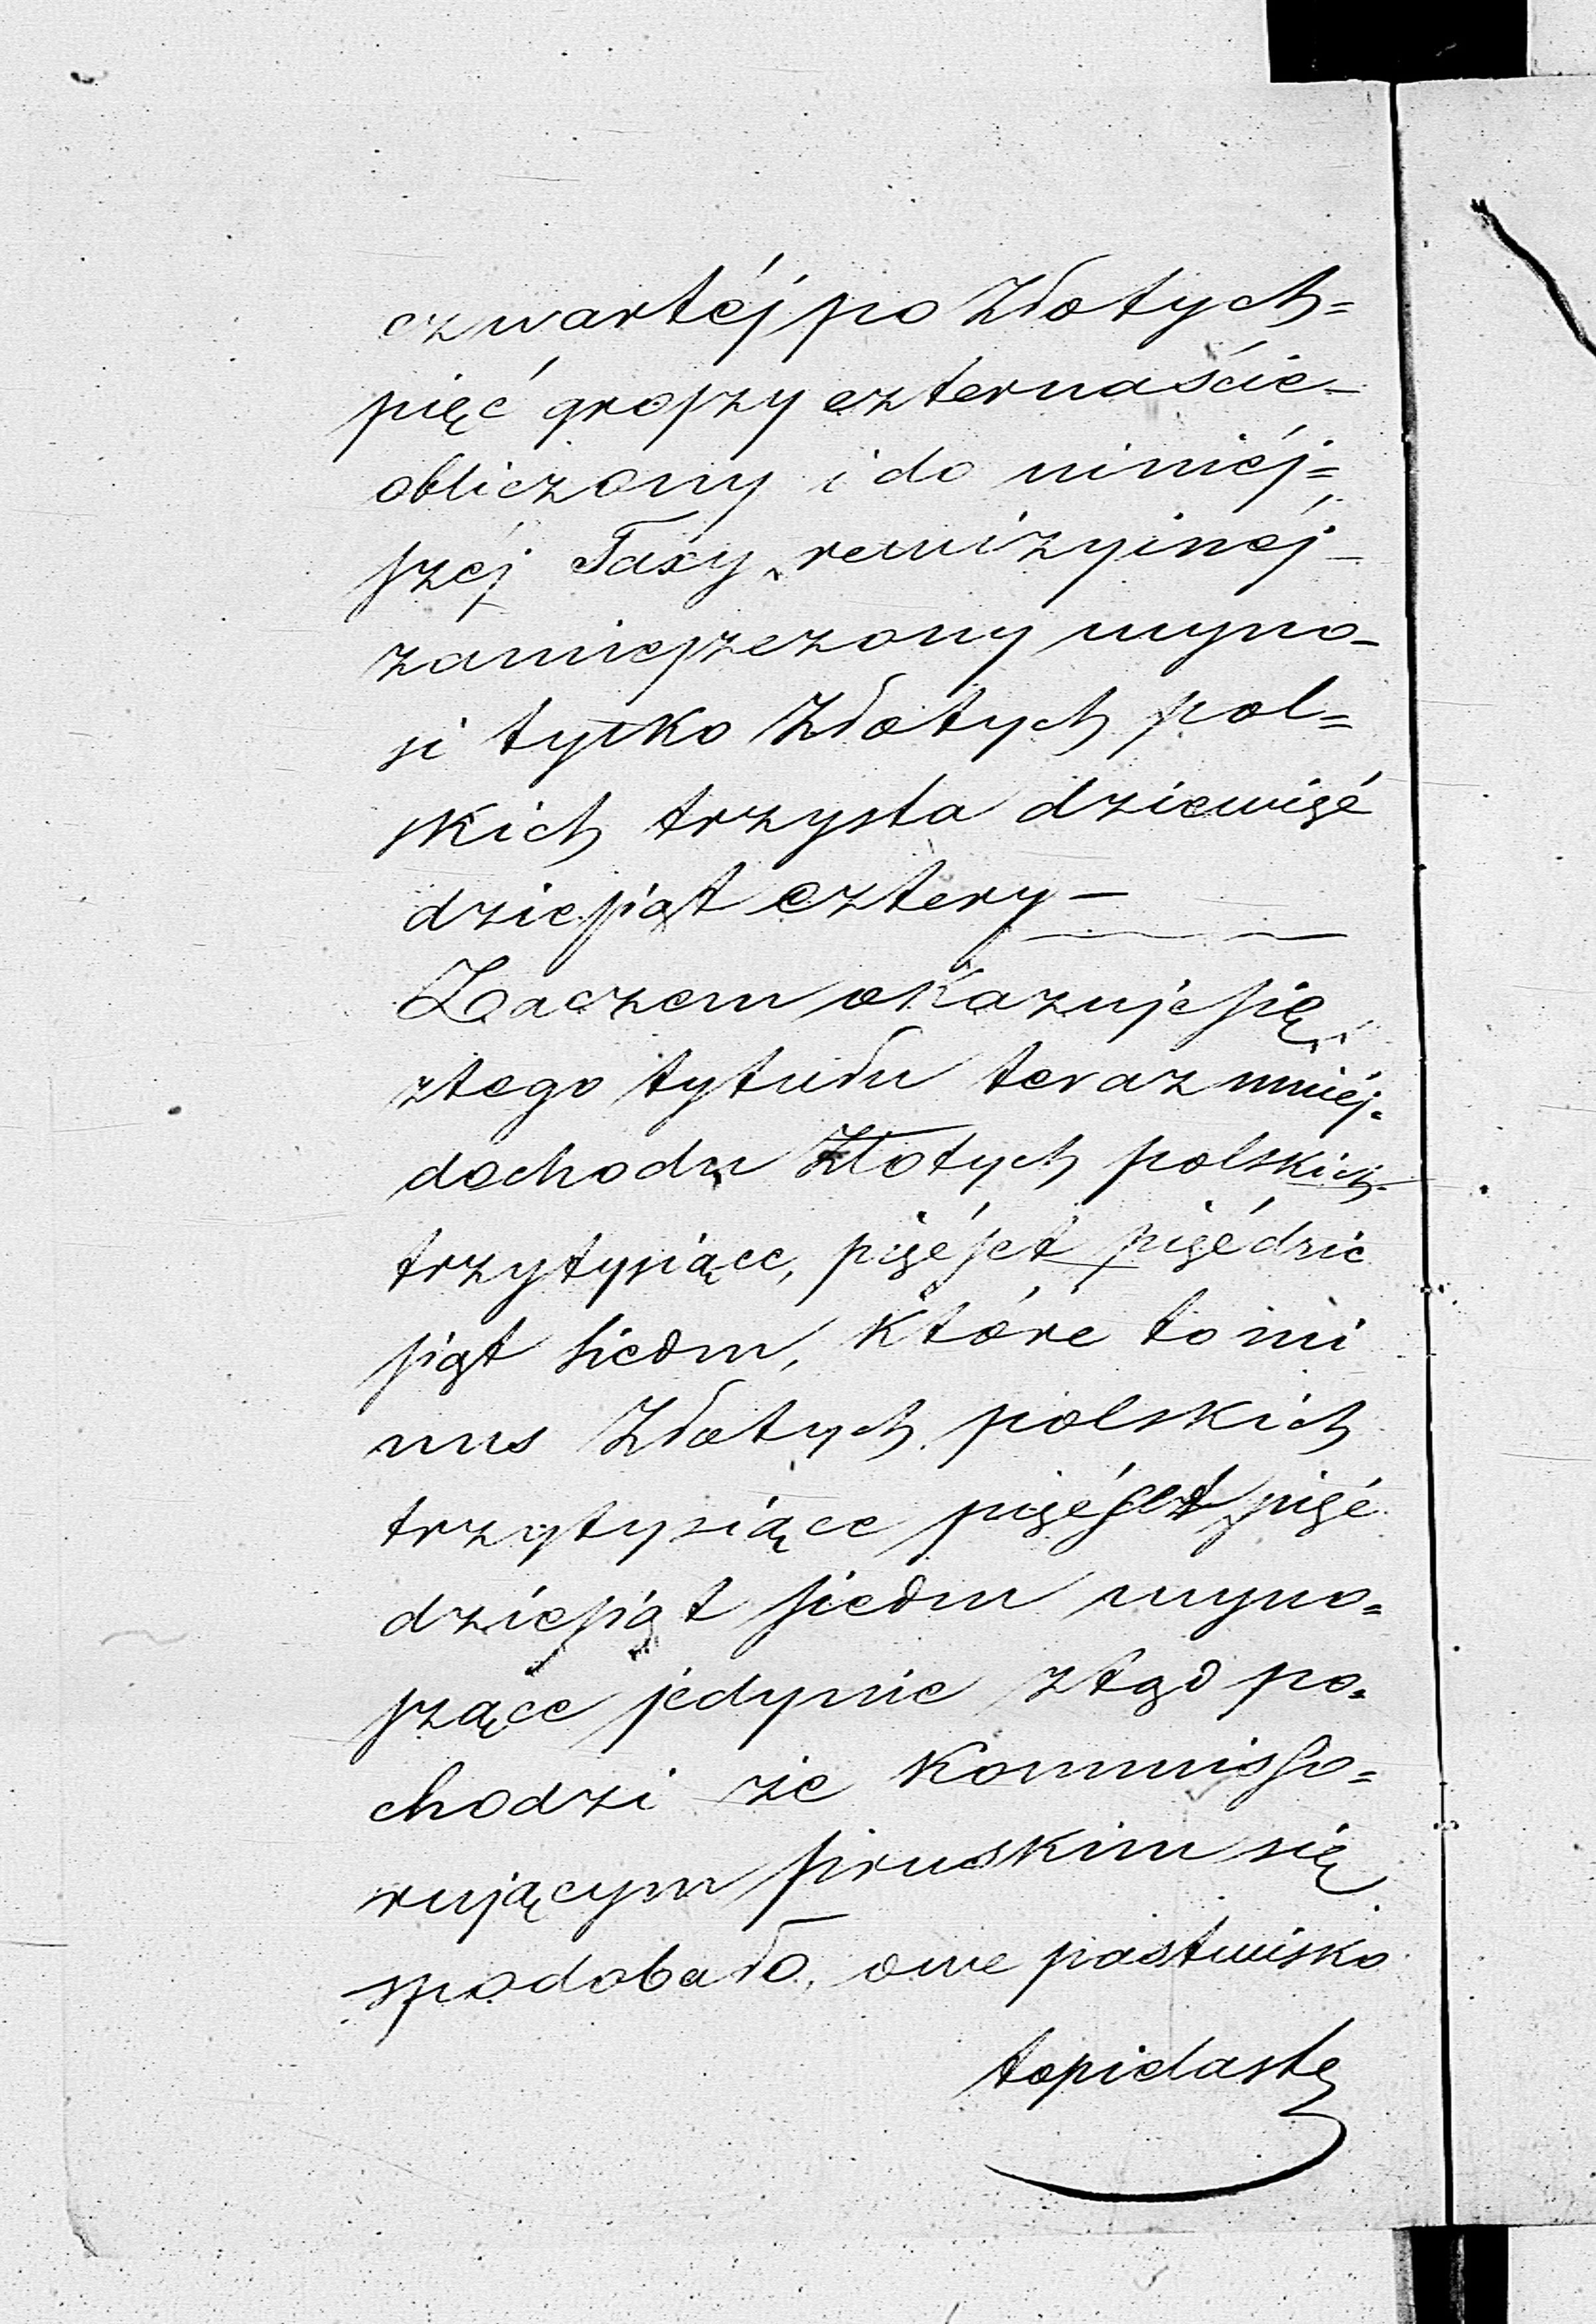 czwartéj po Złotych=
pięć groszy czternaście-
obliczony i do niniéj=
széj Taxy rewizyinéj-
zamieszczony wyno-
si tylko Złotych pol=
skich trzysta dziewięć
dziesiąt cztery-
Zaczem okazuje się
ztego tytułu teraz mniéj-
dochodu Złotych polskich-
trzytysiące, pięćset pięćdzie
siąt siedm, które to mi
nus Złotych polskich
trzytysiące pięćset pięć
dziesiąt siedm wyno=
szące jedynie ztąd po-
chodzi że Kommisso=
rującym pruskim się
spodobało, owe pastwisko
topielaste